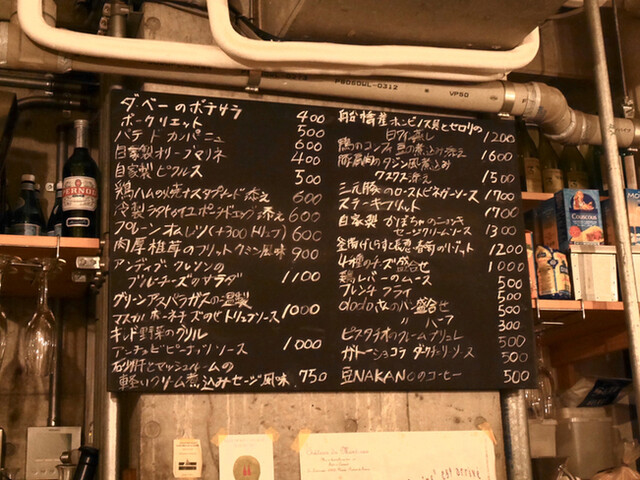 ダベーのポテサラ 400
ポークリエット 500
パテドカンパニュ 600
自家製オリーブマリネ 400
自家製ピクルス 500
鶏ハムの焼ナスタプナード添え 600
冷製ラタトゥイユ ポーチドエッグ添え 600
プレーンオムレツ(+300トリュフ) 600
肉厚椎茸のフリット クミン風味 900
アンディブ クレソンの
ブルーチーズのサラダ 1100
グリーンアスパラガスの温製
マスカルポーネチーズのせトリュフソース 1000
キンド野菜のグリル
アンチョビピーナッツソース 1000
砂肝とマッシュルームの
軽いクリーム煮込みセージ風味 750
船橋産ホンビノス貝とセロリの
白ワイン蒸し 1200
鴨のコンフィ 豆の煮込み添え 1600
豚肩肉のタジン風煮込み
クスクス添え 1500
三元豚のローストビネガーソース 1700
ステーキフリット 1700
自家製 かぼちゃのニョッキ
セージクリームソース 1300
釜揚げしらすと春菊のリゾット 1200
4種のチーズ盛合せ 1000
鶏レバーのムース 500
フレンチフライ 500
dadaさんのパン盛合せ 500
〃 ハーフ 300
ピスタチオのクレームブリュレ 500
ガトーショコラ ダークチェリーソース 500
豆NAKANOのコーヒー 500
PERNOD
COUSCOUS
VP50
Château du
est arrivé